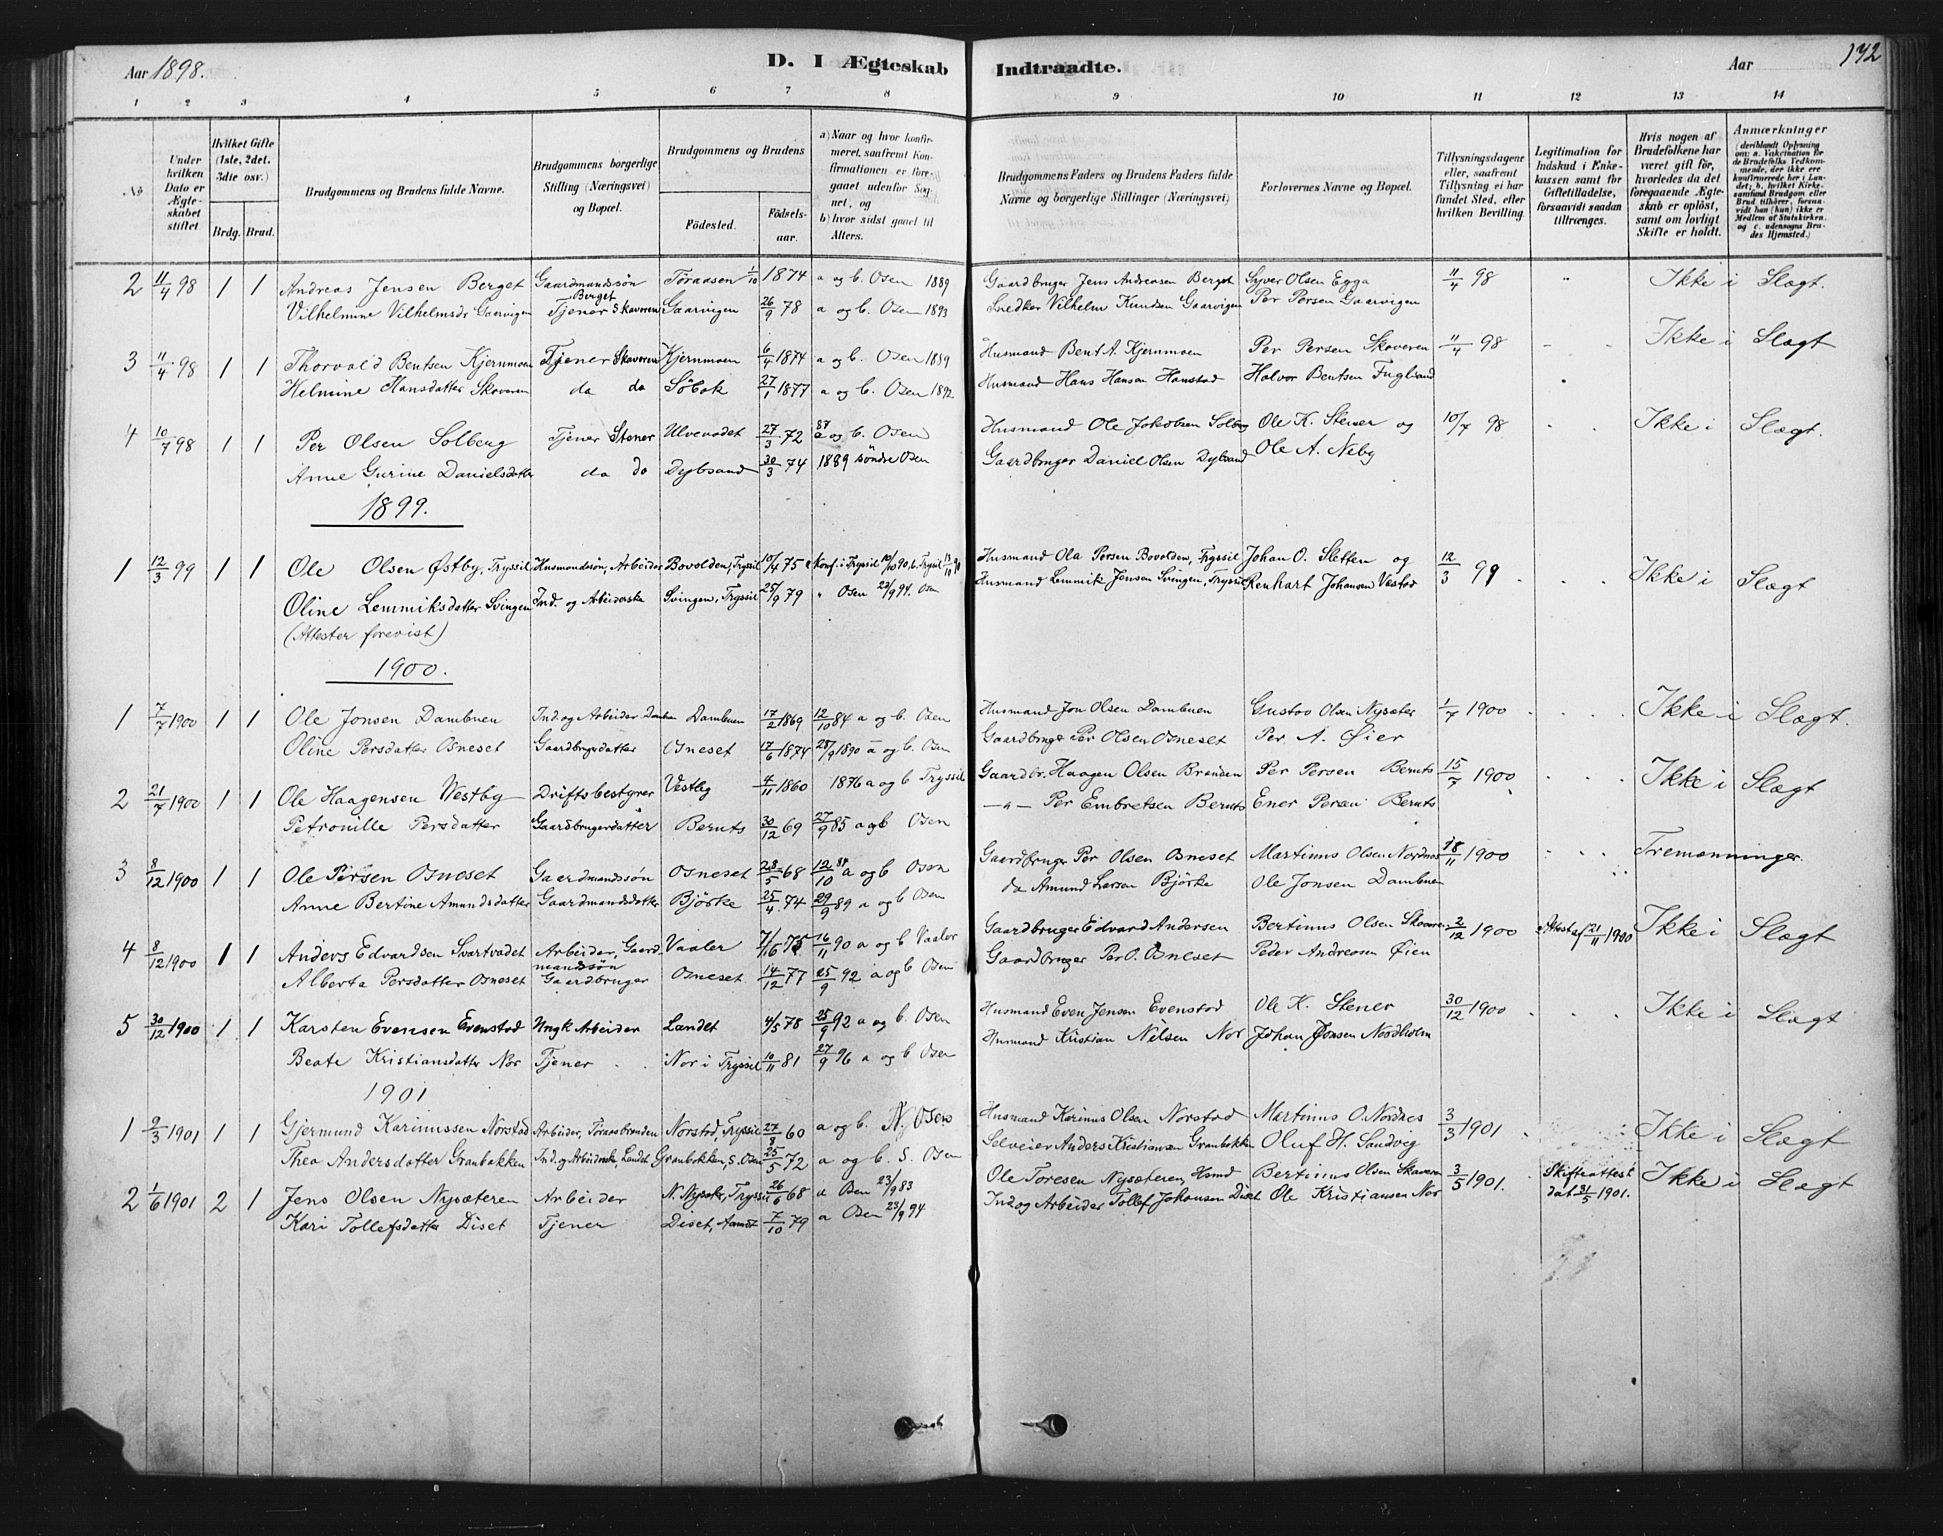 Aar 1898.
D. I Ægteskab Indtraadte.
Aar
172
1 2 3 4 5 6 7 8 9 10 11 12 13 14
No
Under hvilken Dato er Ægteskabet stiftet
Hvilket Gifte (1ste, 2det, 3die osv.)
Brdg. Brud.
Brudgommens og Brudens fulde Navne.
Brudgommens borgerlige Stilling (Næringsvei) og Bopæl.
Brudgommens og Brudens
Fødested.
Fødselsaar.
a) Naar og hvor konfirmeret, saafremt Konfirmationen er foregaaet udenfor Sognet, og
b) hvor sidst gaaet til Alters.
Brudgommens Faders og Brudens Faders fulde Navne og borgerlige Stillinger (Næringsvei)
Forlovernes Navne og Bopæl.
Tillysningsdagene eller, saafremt Tillysning ei har fundet Sted, efter hvilken Bevilling.
Legitimation for Indskud i Enkekassen samt for Giftetilladelse, forsaavidt saadan tiltrænges.
Hvis nogen af Brudefolkene har været gift før, hvorledes da det foregaaende Ægteskab er opløst, samt om lovligt Skifte er holdt.
Anmærkninger (deriblandt Oplysning om: a. Vakcination for de Brudefolks Vedkommende, der ikke ere konfirmerede her i Landet; b. hvilket Kirkesamfund Brudgom eller Brud tilhører, forsaavidt han (hun) ikke er Medlem af Statskirken, og c. udensogns Brudes Hjemsted.)
2 11/4 98 1 1 Andreas Jensen Berget Gaardmandssøn Berget Töraasen 1/10 1874 a og b. Osen 1889 Gaardbruger Jens Andreasen Berget Syver Olsen Egga 11/4 98 Ikke i Slægt.
Vilhelmine Vilhelmsdr Gaarvigen Tjener Skaveren Gaarvigen 26/9 78 a og b. Osen 1893 Snedker Vilhelm Knudsen Gaarvigen Per Persen Gaarvigen
3 11/4 98 1 1 Thorvald Bentsen Kjernmoen Tjener Skaveren Kjernmoen 6/4 1874 a og b. Osen 1889 Husmand Bent A. Kjernmoen Per Persen Skaveren 11/4 98 Ikke i Slægt
Helmine Hansdatter Skaveren do do Söbak 27/1 1877 a og b. Osen 1892 Husmand Hans Hansen Hanstad Halvor Bentsen Fuglsand
4 10/7 98 1 1 Per Olsen Solberg Tjener Stener Ulvevadet 27/3 72 87 a og b. Osen Husmand Ole Jakobsen Solberg Ole K. Stener og 10/7 98 Ikke i Slægt.
Anne Gurine Danielsdatter do do Dybsand 30/3 74 1889 søndre Osen Gaardbruger Daniel Olsen Dybsand Ole A. Neby
1899.
1 12/3 99 1 1 Ole Olsen Østby, Tryssil Husmandssön, Arbeider Bovolden, Tryssil 10/4 75 Konf. i Tryssil 10/10 90, b. Tryssil Husmand Ola Persen Bovolden, Tryssil Johan O. Sletten og 12/3 99 Ikke i Slægt
Oline Lemmiksdatter Svingen Ind. og Arbeiderske Svingen, Tryssil 25/9 79 " Osen 23/9 94. Osen Husmand Lemmik Jensen Svingen, Tryssil Renhart Johansen Væstad
(Attester forevist)
1900.
1 7/7 1900 1 1 Ole Jonsen Dambuen Ind. og Arbeider Dambuen Dambuen 17/2 1869 12/10 84 a og b. Osen Husmand Jon Olsen Dambuen Gustav Olsen Nysæter 1/7 1900 Ikke i Slægt.
Oline Persdatter Osneset Gaardbrugerdatter Osneset 17/6 1874 28/9 1890 a og b. Osen Gaardbruger Per Olsen Osneset Per A. Øier
2 21/7 1900 1 1 Ole Haagensen Westby Driftsbestyrer Vestby 4/11 1860 1876 a og b Tryssil Gaardbr. Haagen Olsen Branden Per Persen Bernts 15/7 1900 Ikke i Slægt
Petronille Persdatter Gaardbrugerdatter Bernts 30/12 69 27/9 85 a og b Osen —"— Per Embretsen Bernts Ener Persen Bernts
3 8/12 1900 1 1 Ole Persen Osneset Gaardmandssön Osneset 28/5 68 12/10 84 a og b Osen Gaardbruger Per Olsen Osneset Martinus Olsen Nordnes 18/11 1900 Tremænninger.
Anne Bertine Amundsdatter Gaardmandsdatter Björke 25/4 74 29/9 89 a og b Osen do Amund Larsen Björke Ole Jonsen Dambuen
4 8/12 1900 1 1 Anders Edvardsen Svartvadet Arbeider, Gaardmandssön Vaaler 7/6 75 16/11 90 a og b Vaaler Gaardbruger Edvard Andersen Bertinus Olsen Skaveren 2/12 1900 Attest af 21/11 1900 Ikke i Slægt
Alberta Persdatter Osneset Gaardbruger Osneset 14/12 77 25/9 92 a og b Osen Gaardbruger Per O. Osneset Peder Andreasen Øien
5 30/12 1900 1 1 Karsten Evensen Evenstad Ungk Arbeider Landet 4/5 78 25/9 92 a og b. Osen Husmand Even Jensen Evenstad Ole K. Stener 30/12 1900 Ikke i Slægt
Beate Kristiansdatter Nor Tjener Nor i Tryssil 10/11 81 27/9 96 a og b Osen Husmand Kristian Nilsen Nor Johan Jonsen Nordholm
1901
1 9/3 1901 1 1 Gjermund Karinussen Norstad Arbeider, Töraasbranden Norstad, Tryssil 27/8 60 a og b. N. Osen Husmand Karinus Olsen Norstad Martinus O. Nordnes 3/3 1901 Ikke i Slægt
Thea Andersdatter Granbakken Ind. og Arbiderske, Landet Granbakken, S. Osen 25/5 72 a og b. S. Osen Selveier Anders Kristiansen Granbakken Oluf H. Sandvig
2 1/6 1901 2 1 Jens Olsen Nysæteren Arbeider N. Nysæter, Tryssil 26/6 68 a Osen 23/9 83 Ole Toresen Nysæteren, Husmd Bertinus Olsen Skaveren 3/5 1901. Skifteattest dat 31/5 1901. Ikke i Slægt
Kari Tollefsdatter Diset Tjener Diset, Aamot 7/10 79 a Osen 23/9 94 Ind. og Arbeider Tollef Johansen Diset Ole Kristiansen Nor